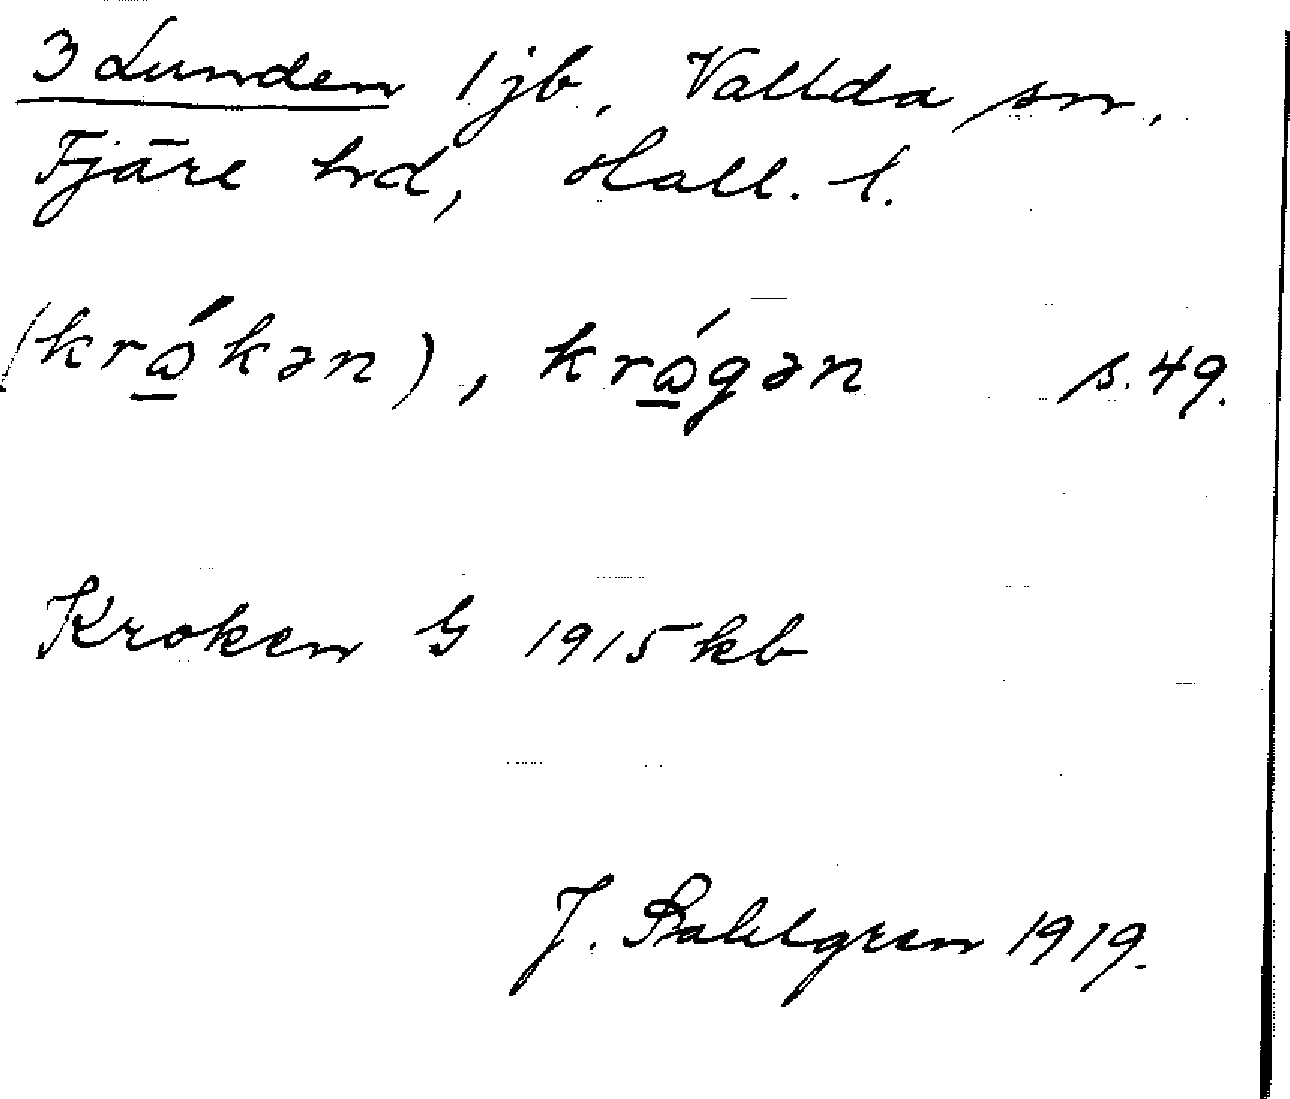 3 Lunden 1 jb, Vallda sn,
Fjäre hd, Hall. l.
(krώ̲kən), krώ̲gən s. 49.
Kroken G 1915 kb
J. Sahlgren 1919.